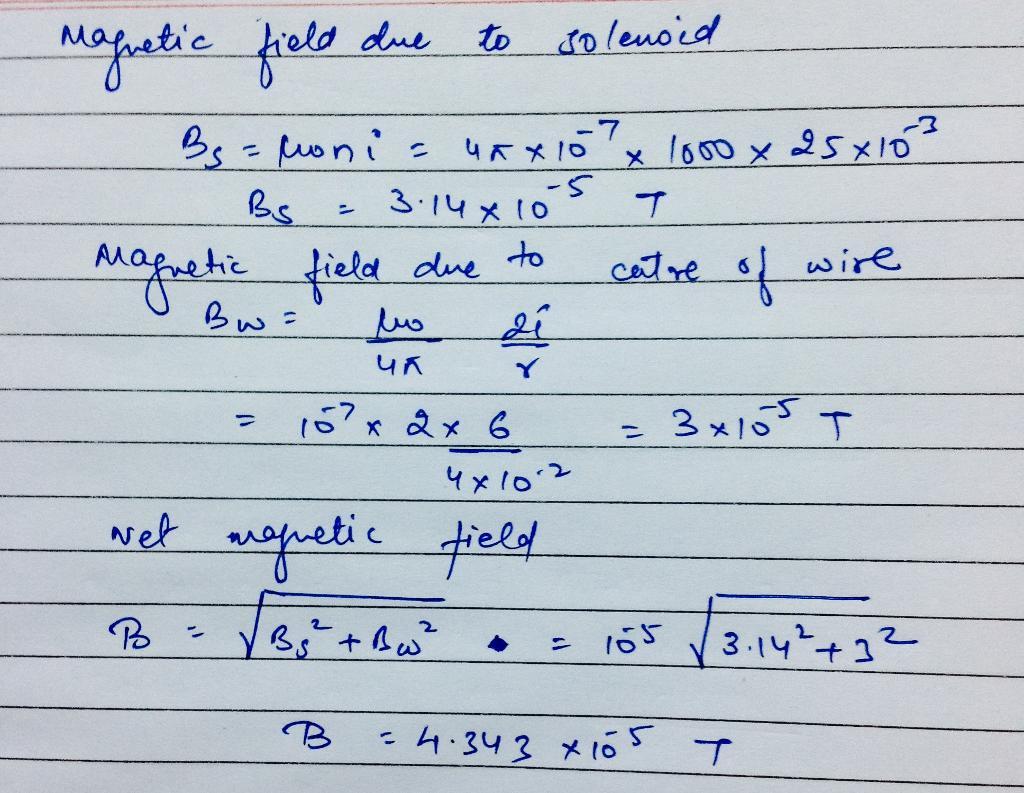 Magnetic field due to solenoid
Bs = μ0 n i = 4π × 10⁻⁷ × 1000 × 25 × 10⁻³
Bs = 3.14 × 10⁻⁵ T
Magnetic field due to catre of wire
Bw = μ0/4π 2i/r
= 10⁻⁷ × 2 × 6/4×10⁻² = 3 × 10⁻⁵ T
Net magnetic field
B = √(Bs² + Bw²) = 10⁻⁵ √(3.14² + 3²)
B = 4.343 × 10⁻⁵ T